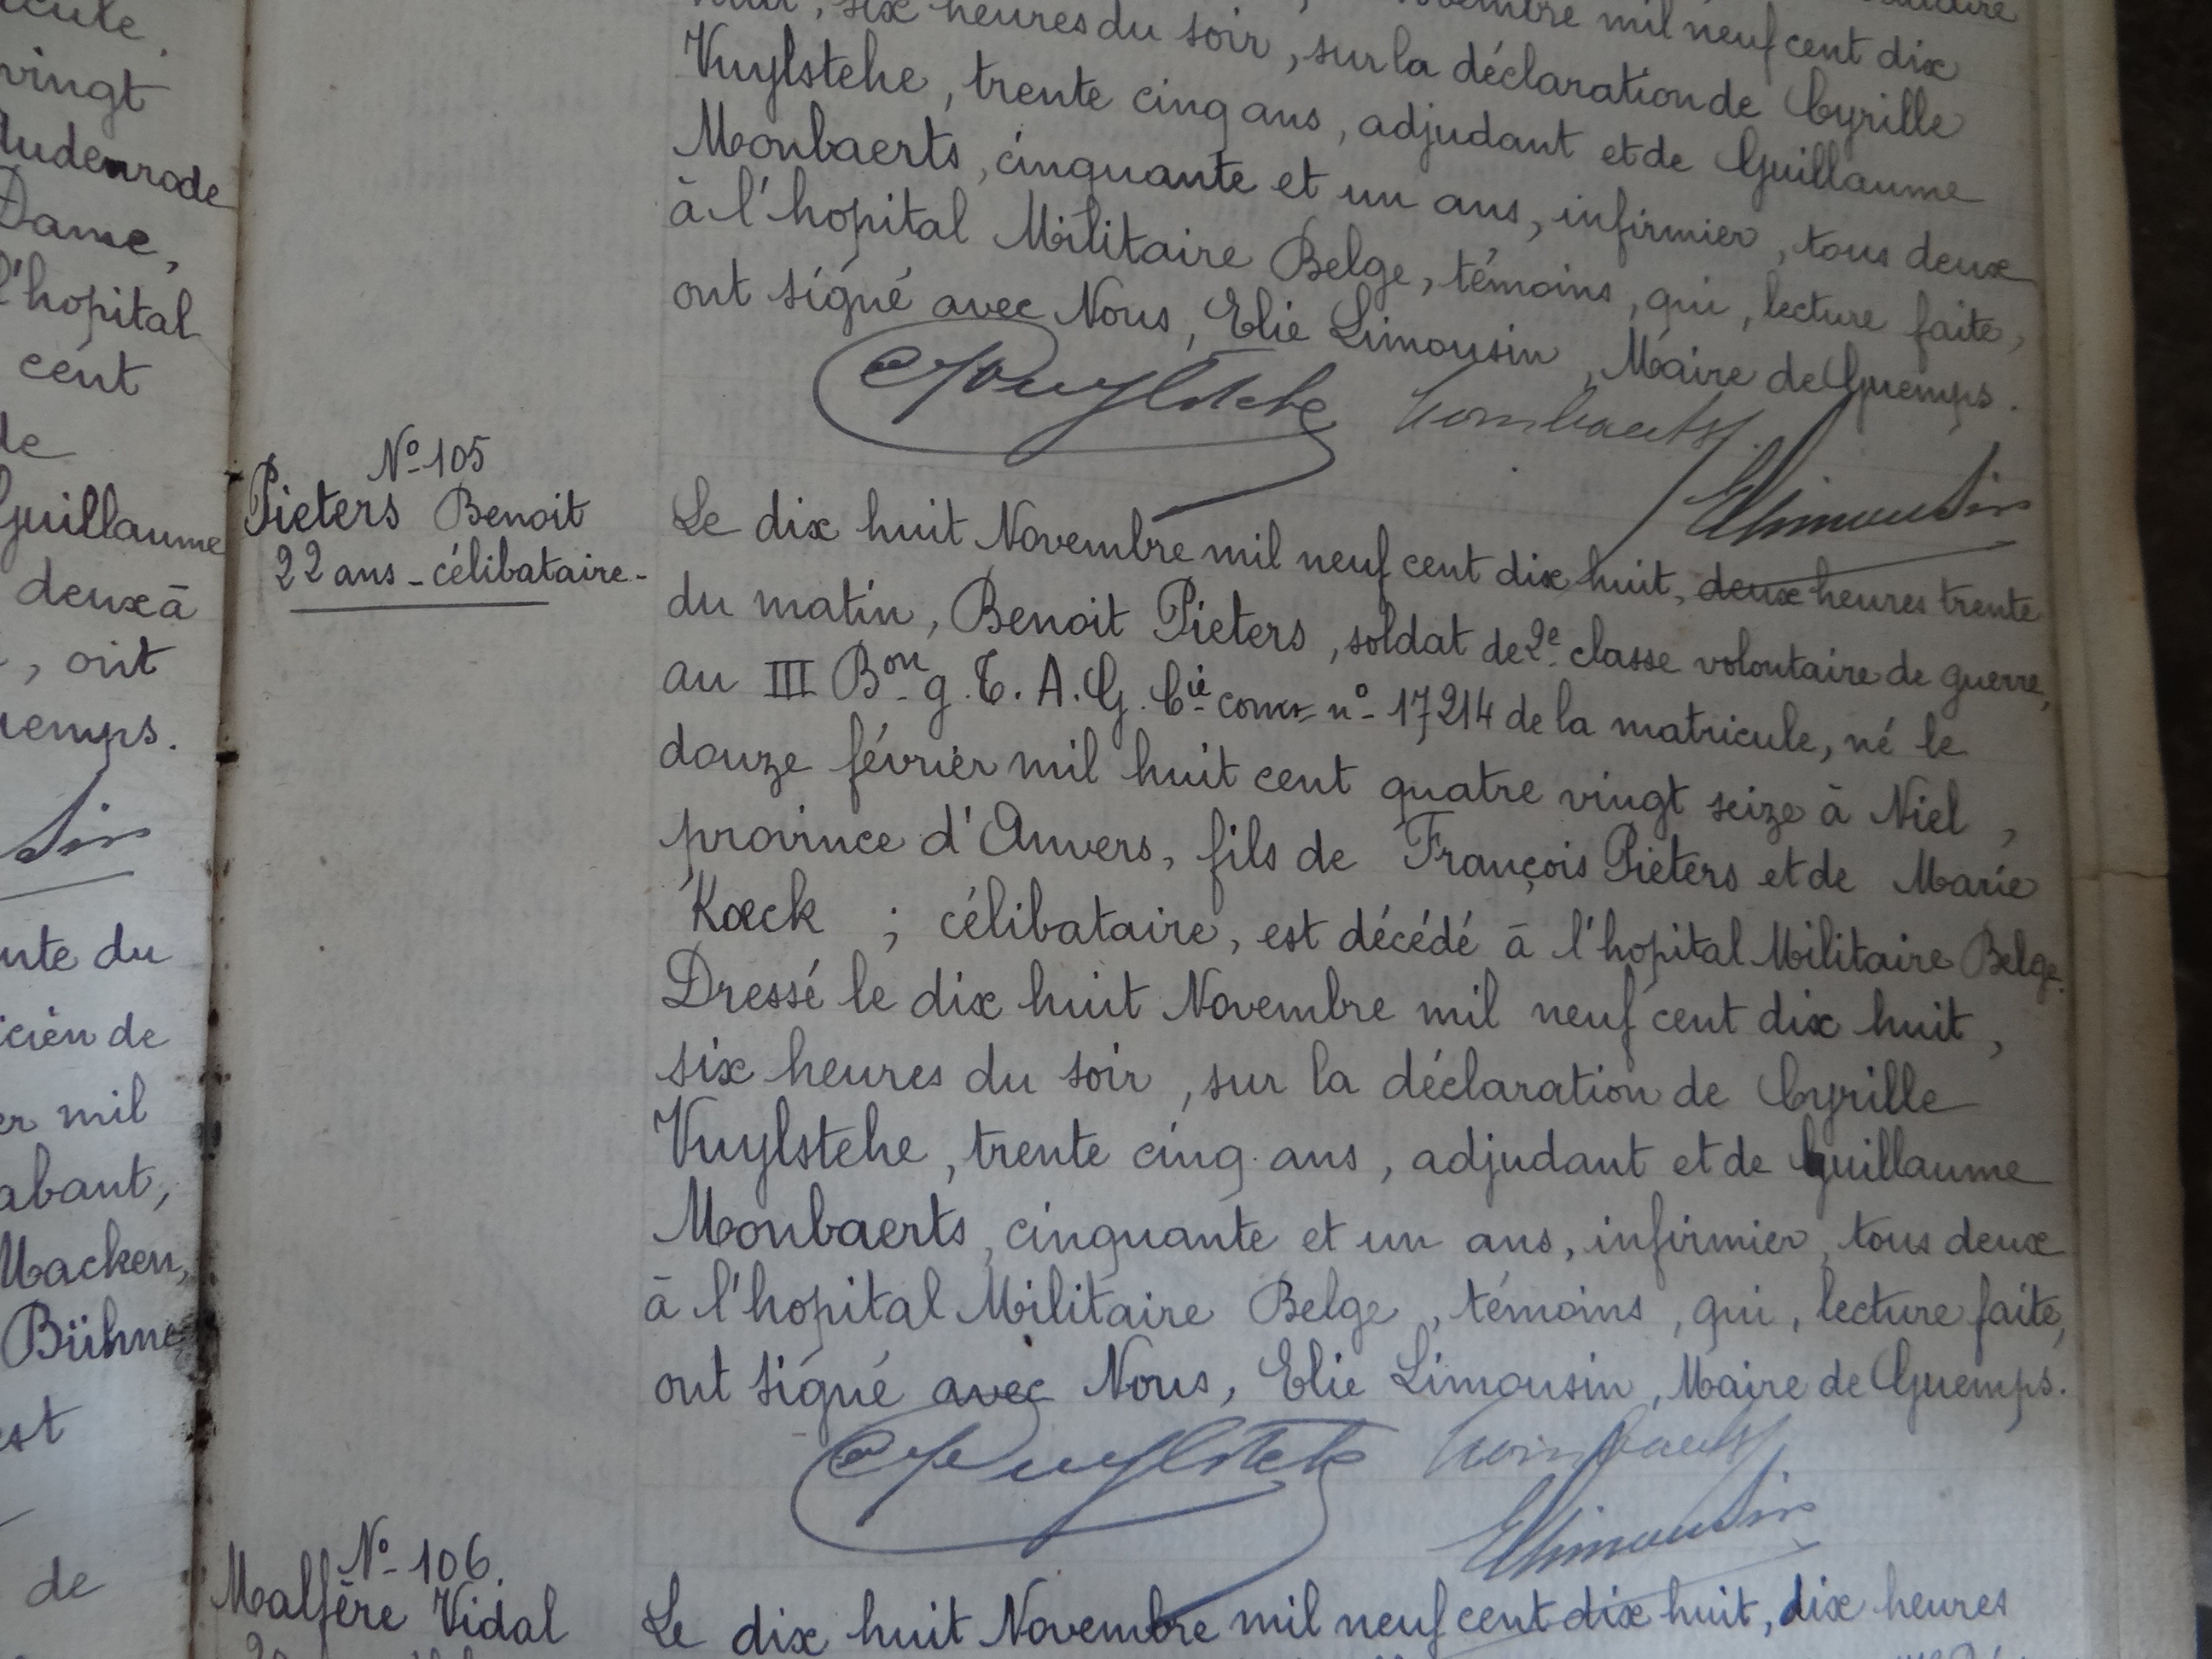 cule,
vingt
Audenrode
Dame,
l'hopital
cent
de
Guillaume
deux à
, ont
uemps.
sin
nte du
icien de
er mil
abant,
Macken,
Bühne
st
de
novembre mil neuf cent dix
huit, six heures du soir, sur la déclaration de Cyrille
Vuylstehe, trente cinq ans, adjudant et de Guillaume
Monbaerts, cinquante et un ans, infirmier, tous deux
à l'hopital Militaire Belge, témoins, qui, lecture faite,
ont signé avec Nous, Elie Limousin, Maire de Guemps.
Vuylsteke Mombaerts
ELimousin
No 105
Pieters Benoit
22 ans - célibataire -
Le dix huit Novembre mil neuf cent dix huit, deux heures trente
du matin, Benoit Pieters, soldat de 2e classe volontaire de guerre,
au III Bon g. T. A. G. Cie no 17214 de la matricule, né le
douze février mil huit cent quatre vingt seize à Niel,
province d'Anvers, fils de François Pieters et de Marie
Kœck ; célibataire, est décédé à l'hopital Militaire Belge.
Dressé le dix huit Novembre mil neuf cent dix huit,
six heures du soir, sur la déclaration de Cyrille
Vuylstehe, trente cinq ans, adjudant et de Guillaume
Monbaerts, cinquante et un ans, infirmier, tous deux
à l'hopital Militaire Belge, témoins, qui, lecture faite,
ont signé avec Nous, Elie Limousin, Maire de Guemps.
Vuylsteke Mombaerts
ELimousin
No 106.
Malfère Vidal
Le dix huit Novembre mil neuf cent dix huit, dix heures